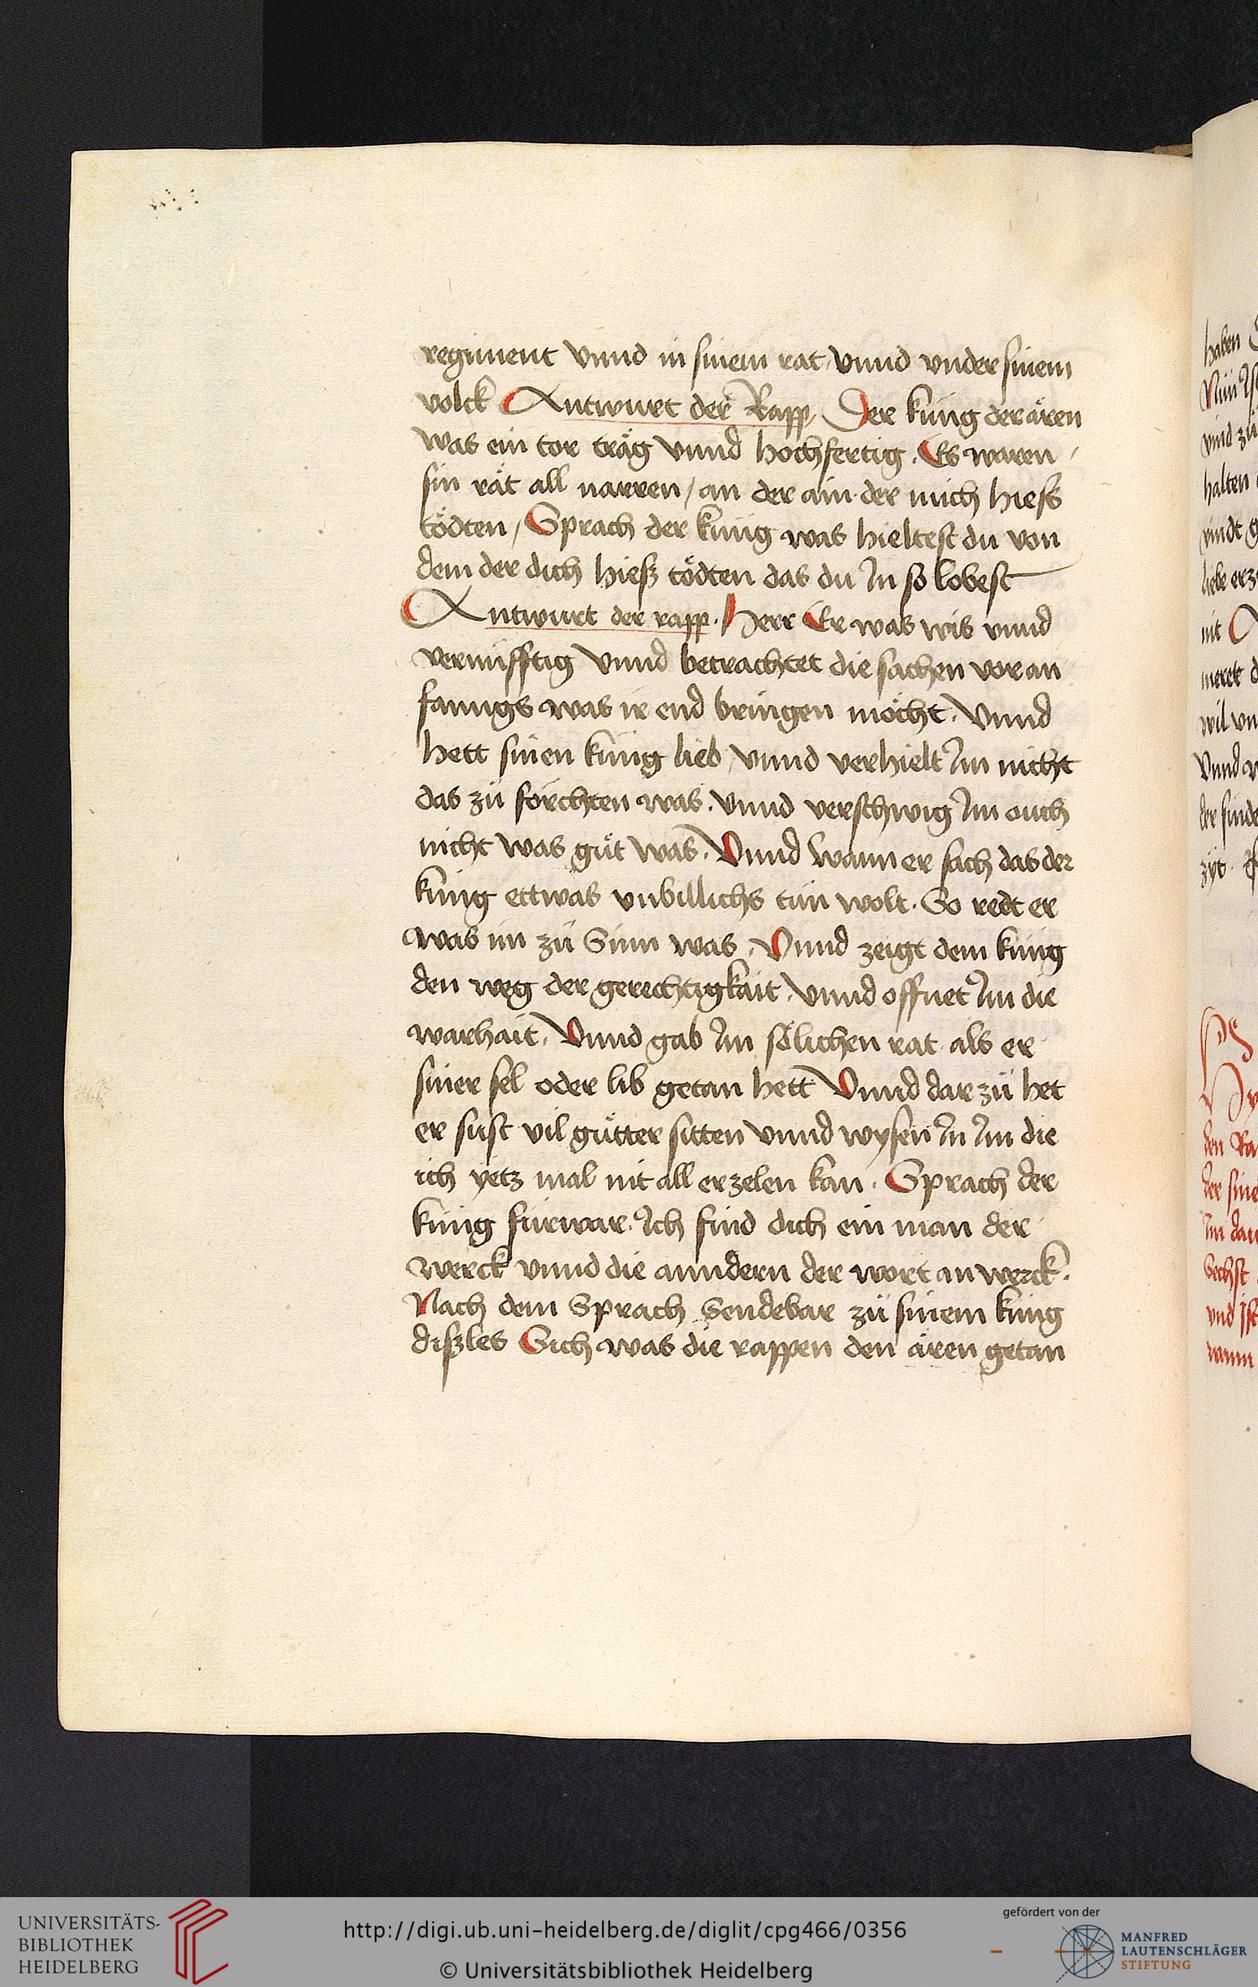 regiment vnnd in sinem rat vnnd vnder sinem
volck Antwurt der Rapp Der küng der åren
was ein tor träg vnnd hochfertig. Es waren
sin rät all narren / an der ain der mich hiess
tödten / Sprach der küng was hieltest du von
dem der dich hiess tödten das du Jn so lobest
Antwurt der rapp. Herr Er was wis vnnd
vernüfftig vnnd betrachtet die sachen vor an
fanngs was ir end bringen möcht. Vnnd
hett sinen küng lieb / vnnd verhielt Jm nicht
das zů förchten was. vnnd verschwig Jm ouch
nicht was gůt was. Vnnd wann er sach das der
küng ettwas vnbillichs tůn wolt. So redt er
was im zů Sinn was. Vnnd zeigt dem küng
den weg der gerechtigkait. vnnd offnet Jm die
warhait. Vnnd gab Jm sölichen rat als er
siner sel oder lib getan hett Vnnd dar zů het
er sust vil gůtter sitten vnnd wysen Jn Jm die
ich yetz mal nit all erzelen kan. Sprach der
küng fürwar. Jch find dich ein man der
werck vnnd die anndern der wort an werck.
Nach dem Sprach Sendebar zů sinem küng
dissles Sich was die rappen den åren getan
haben
halten
nit
zyt
UNIVERSITÄTS-
BIBLIOTHEK
HEIDELBERG
http://digi.ub.uni-heidelberg.de/diglit/cpg466/0356
© Universitätsbibliothek Heidelberg
gefördert von der
MANFRED
LAUTENSCHLÄGER
STIFTUNG